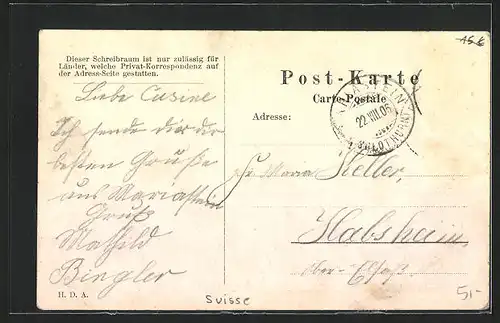 Dieser Schreibraum ist nur zulässig für
Länder, welche Privat-Korrespondenz auf
der Adress-Seite gestatten.
Liebe Cusine
Ich sende dir die
besten Grüße
aus Mariastein
Gruß
Mathild
Bingler
H. D. A.
Suisse
Post-Karte
Carte-Postale
Adresse:
22.VIII.06
(SOLOTHURN)
Maria Keller,
Habsheim
Ober-Elsaß.
5,-